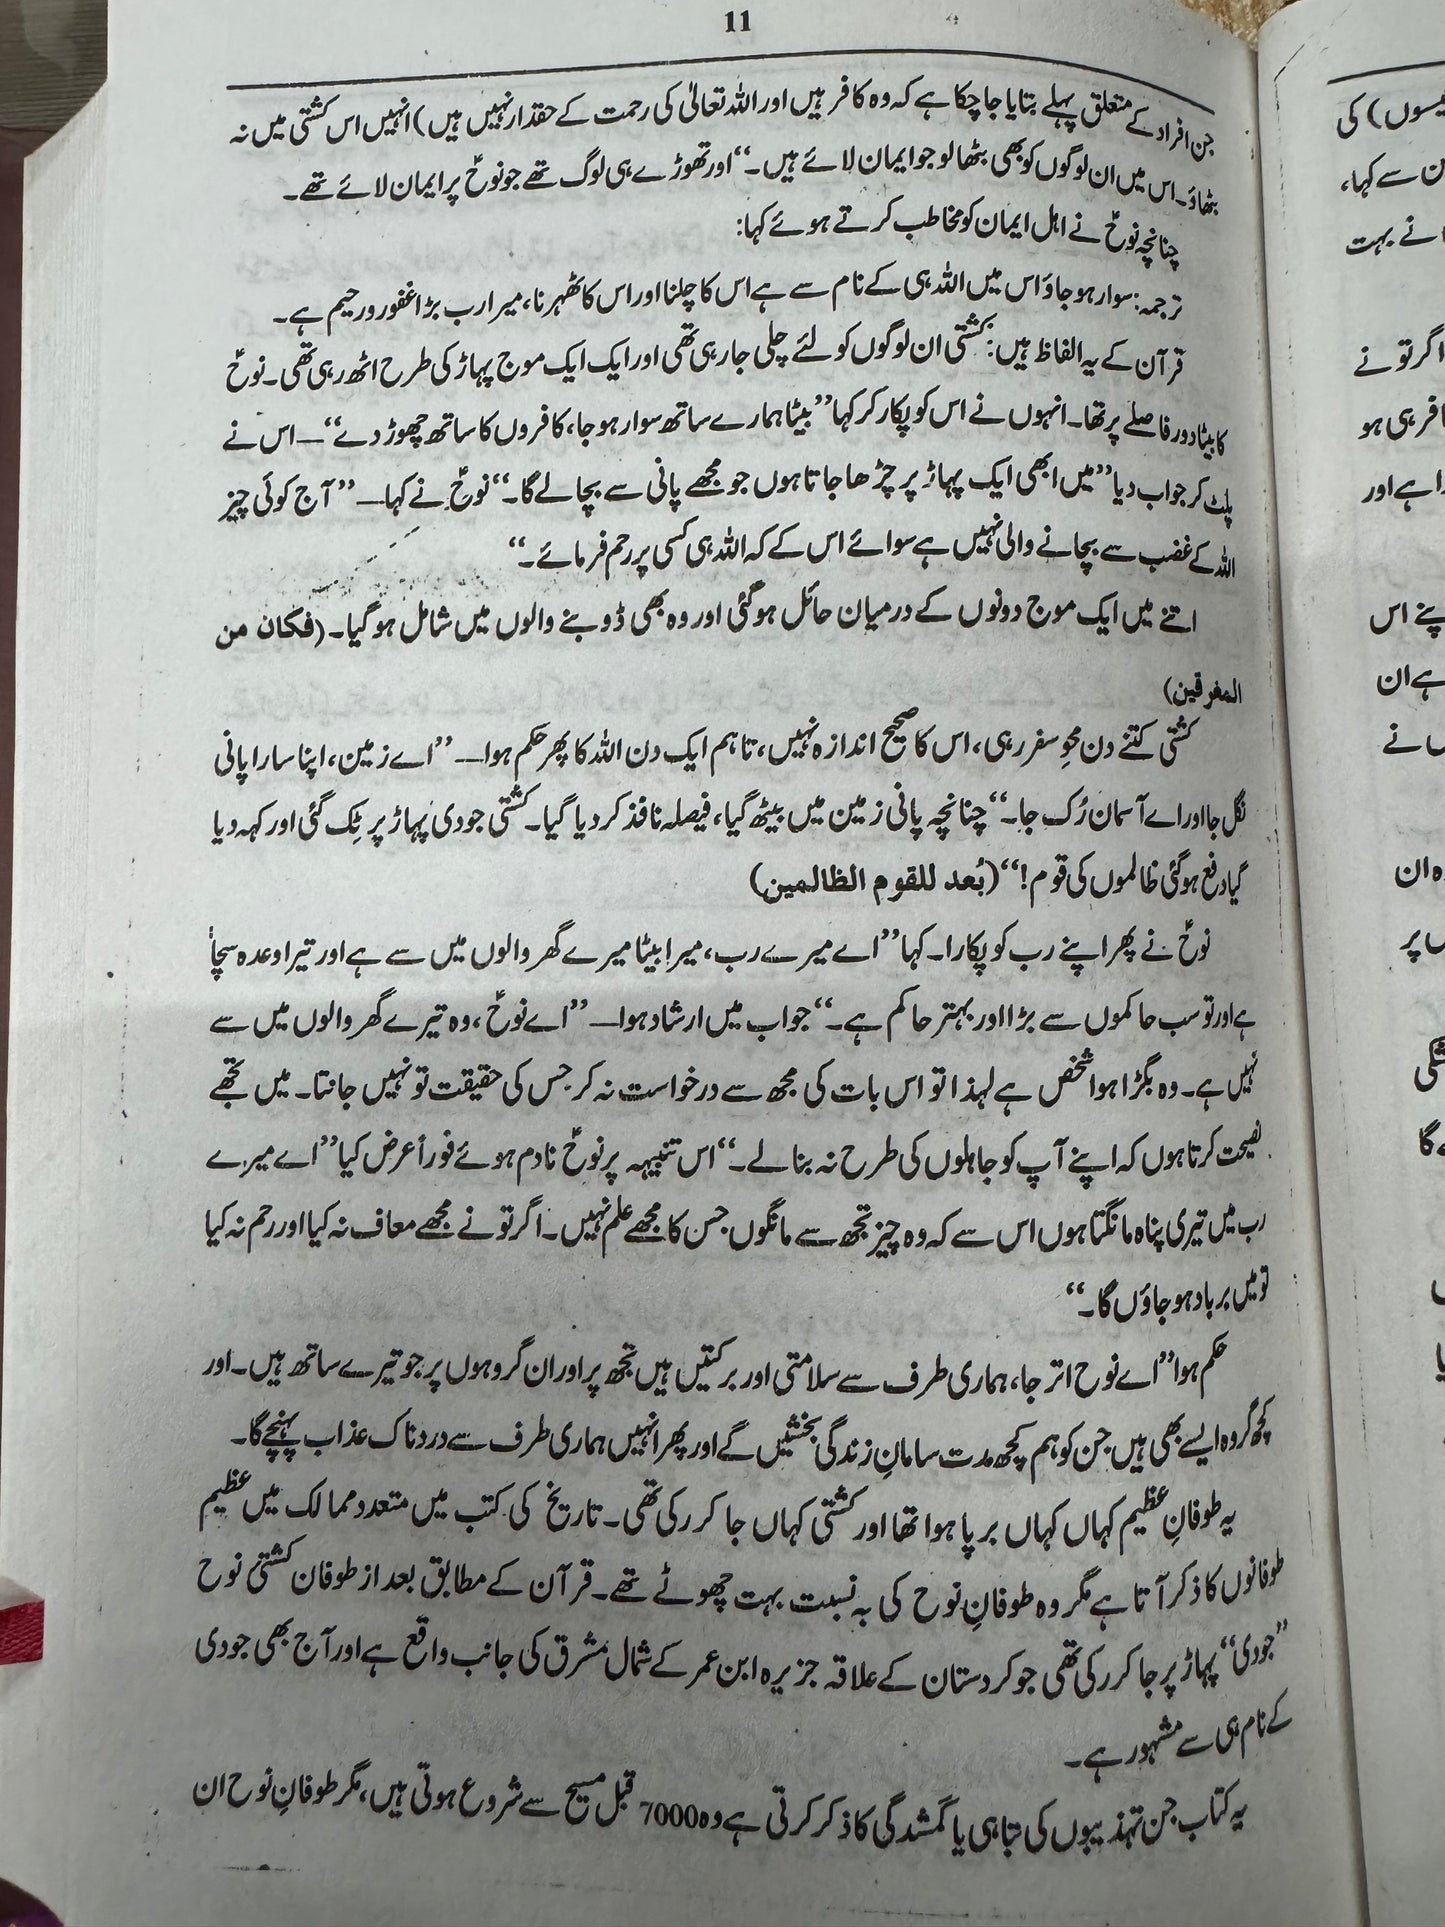 11
جن افراد کے متعلق پہلے بتایا جا چکا ہے کہ وہ کافر ہیں اور اللہ تعالیٰ کی رحمت کے حقدار نہیں ہیں) انہیں اس کشتی میں نہ
بٹھاؤ۔ اس میں ان لوگوں کو بھی بٹھا لو جو ایمان لائے ہیں۔“ اور تھوڑے ہی لوگ تھے جو نوحؑ پر ایمان لائے تھے۔
چنانچہ نوحؑ نے اہل ایمان کو مخاطب کرتے ہوئے کہا:
ترجمہ: سوار ہو جاؤ اس میں اللہ ہی کے نام سے ہے اس کا چلنا اور اس کا ٹھہرنا، میرا رب بڑا غفور و رحیم ہے۔
قرآن کے یہ الفاظ ہیں: کشتی ان لوگوں کو لئے چلی جا رہی تھی اور ایک ایک موج پہاڑ کی طرح اٹھ رہی تھی۔ نوحؑ
کا بیٹا دور فاصلے پر تھا۔ انہوں نے اس کو پکار کر کہا ”بیٹا ہمارے ساتھ سوار ہو جا، کافروں کا ساتھ چھوڑ دے“— اس نے
پلٹ کر جواب دیا ”میں ابھی ایک پہاڑ پر چڑھا جاتا ہوں جو مجھے پانی سے بچا لے گا۔“ نوحؑ نے کہا— ”آج کوئی چیز
اللہ کے غضب سے بچانے والی نہیں ہے سوائے اس کے کہ اللہ ہی کسی پر رحم فرمائے۔“
اتنے میں ایک موج دونوں کے درمیان حائل ہو گئی اور وہ بھی ڈوبنے والوں میں شامل ہو گیا۔ (فکان من
المغرقین)
کشتی کتنے دن محوِ سفر رہی، اس کا صحیح اندازہ نہیں، تاہم ایک دن اللہ کا پھر حکم ہوا— ”اے زمین، اپنا سارا پانی
نگل جا اور اے آسمان رُک جا۔“ چنانچہ پانی زمین میں بیٹھ گیا، فیصلہ نافذ کر دیا گیا۔ کشتی جودی پہاڑ پر ٹِک گئی اور کہہ دیا
گیا دفع ہو گئی ظالموں کی قوم!“ (بُعد للقوم الظالمین)
نوحؑ نے پھر اپنے رب کو پکارا۔ کہا ”اے میرے رب، میرا بیٹا میرے گھر والوں میں سے ہے اور تیرا وعدہ سچا
ہے اور تو سب حاکموں سے بڑا اور بہتر حاکم ہے۔“ جواب میں ارشاد ہوا— ”اے نوحؑ، وہ تیرے گھر والوں میں سے
نہیں ہے۔ وہ بگڑا ہوا شخص ہے لہذا تو اس بات کی مجھ سے درخواست نہ کر جس کی حقیقت تو نہیں جانتا۔ میں تجھے
نصیحت کرتا ہوں کہ اپنے آپ کو جاہلوں کی طرح نہ بنا لے۔“ اس تنبیہہ پر نوحؑ نادم ہوئے فوراً عرض کیا ”اے میرے
رب میں تیری پناہ مانگتا ہوں اس سے کہ وہ چیز تجھ سے مانگوں جس کا مجھے علم نہیں۔ اگر تو نے مجھے معاف نہ کیا اور رحم نہ کیا
تو میں برباد ہو جاؤں گا۔“
حکم ہوا ”اے نوح اتر جا، ہماری طرف سے سلامتی اور برکتیں ہیں تجھ پر اور ان گروہوں پر جو تیرے ساتھ ہیں۔ اور
کچھ گروہ ایسے بھی ہیں جن کو ہم کچھ مدت سامانِ زندگی بخشیں گے اور پھر انہیں ہماری طرف سے دردناک عذاب پہنچے گا۔
یہ طوفانِ عظیم کہاں کہاں برپا ہوا تھا اور کشتی کہاں جا کر رکی تھی۔ تاریخ کی کتب میں متعدد ممالک میں عظیم
طوفانوں کا ذکر آتا ہے مگر وہ طوفانِ نوح کی بہ نسبت بہت چھوٹے تھے۔ قرآن کے مطابق بعد از طوفان کشتئ نوح
”جودی“ پہاڑ پر جا کر رکی تھی جو کردستان کے علاقہ جزیرہ ابن عمر کے شمال مشرق کی جانب واقع ہے اور آج بھی جودی
کے نام ہی سے مشہور ہے۔
یہ کتاب جن تہذیبوں کی تباہی یا گمشدگی کا ذکر کرتی ہے وہ 7000 قبل مسیح سے شروع ہوتی ہیں، مگر طوفانِ نوح ان